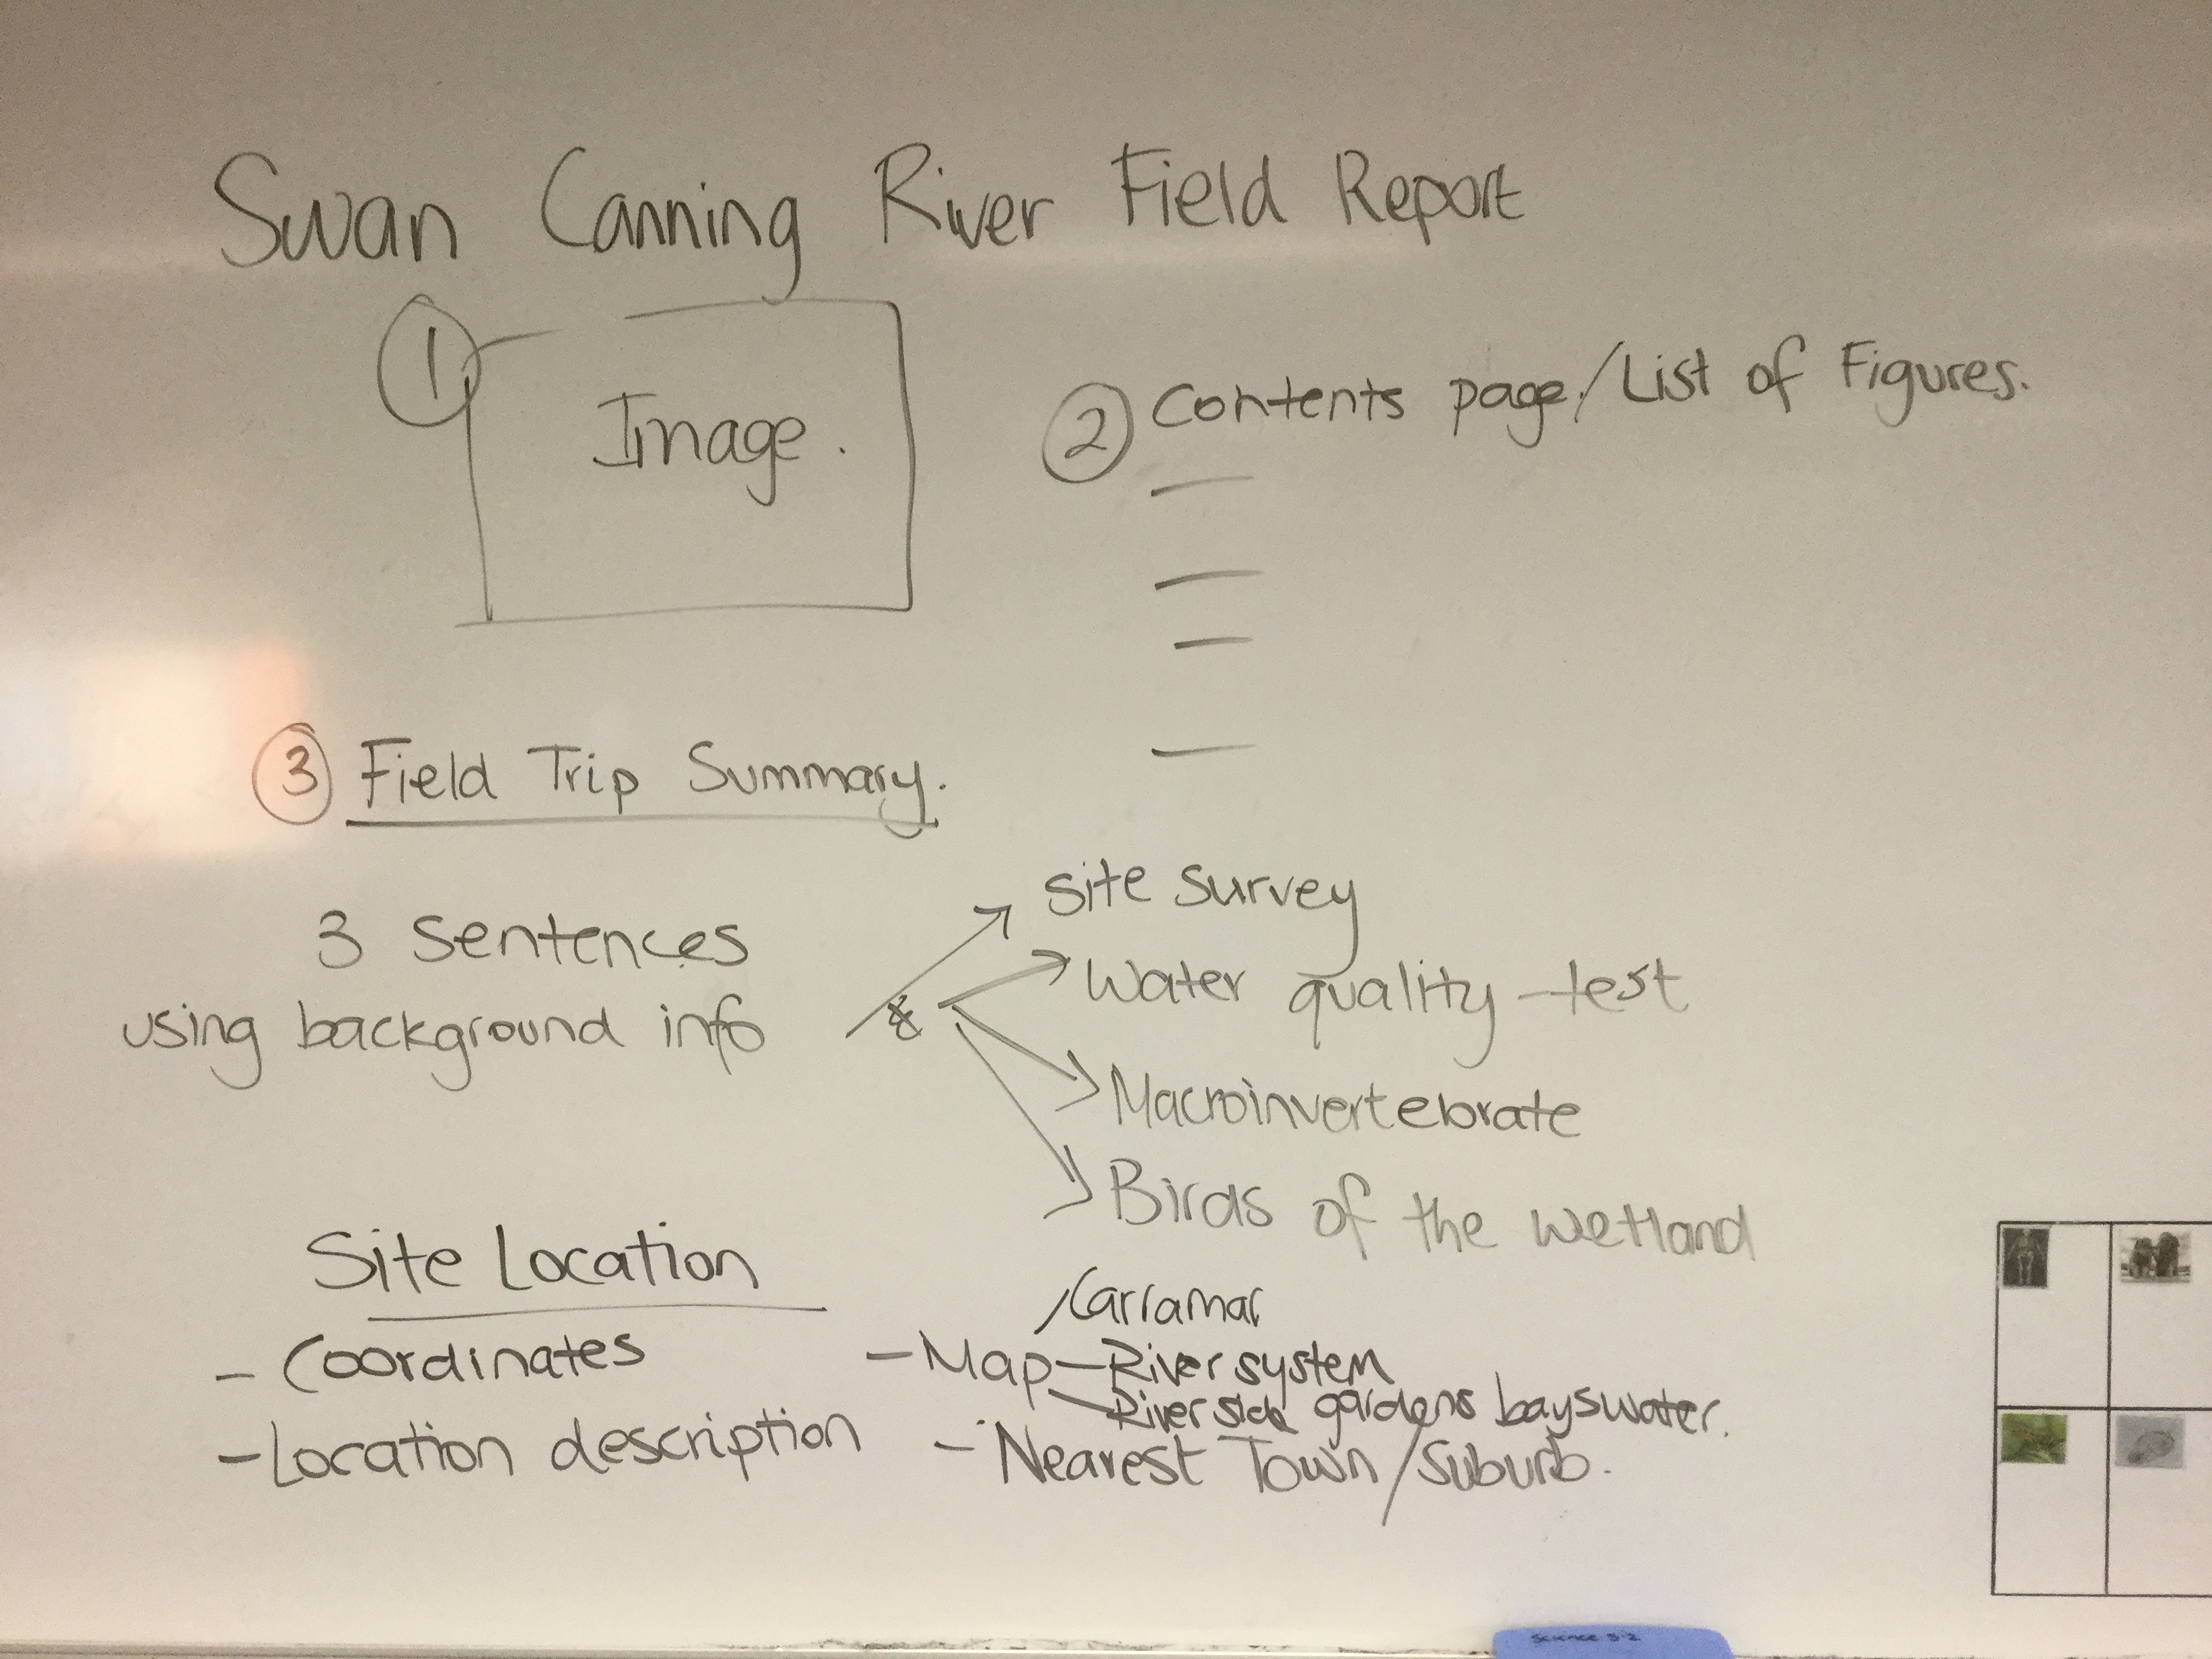 Swan Canning River Field Report
1
Image.
2 Contents page/List of Figures.
3 Field Trip Summary.
3 Sentences
using background info
Site survey
Water quality test
Macroinvertebrate
Birds of the wetland
Site Location
- Coordinates
- Location description
- Map
Carramar
River system
River side gardens bayswater.
- Nearest Town/Suburb.
Science S-2